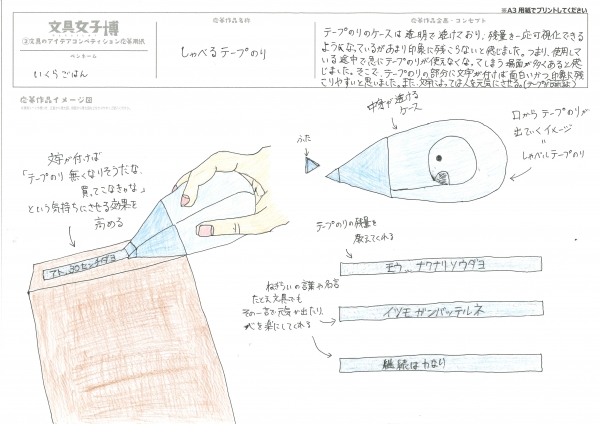 ※A3 用紙でプリントしてください
文具女子博
②文具のアイデアコンペティション応募用紙
ペンネーム
いくらごはん
応募作品名称
しゃべるテープのり
応募作品企画・コンセプト
テープのりのケースは透明で透けており、残量を一応可視化できる
ようになっているがあまり印象に残らないと感じました。つまり、使用して
いる途中で急にテープのりが使えなくなってしまう場面が多くあると感
じました。そこで、テープのりの部分に文字が付けば面白いかつ印象に残
こりやすいと思いました。また、文字によっては人を元気にさせる。
応募作品イメージ図
文字が付けば
「テープのり無くなりそうだな、
買ってこなきゃな」
という気持ちにさせる効果を
高める
アト、30センチダヨ
中身が透ける
ケース
ふた
口からテープのりが
出ていくイメージ
=
しゃべるテープのり
テープのりの残量を
教えてくれる
モウ、、ナクナリソウダヨ
ねぎらいの言葉や名言
たとえ文具でも
その一言で元気が出たり、
心を楽にしてくれる
イツモガンバッテルネ
継続は力なり